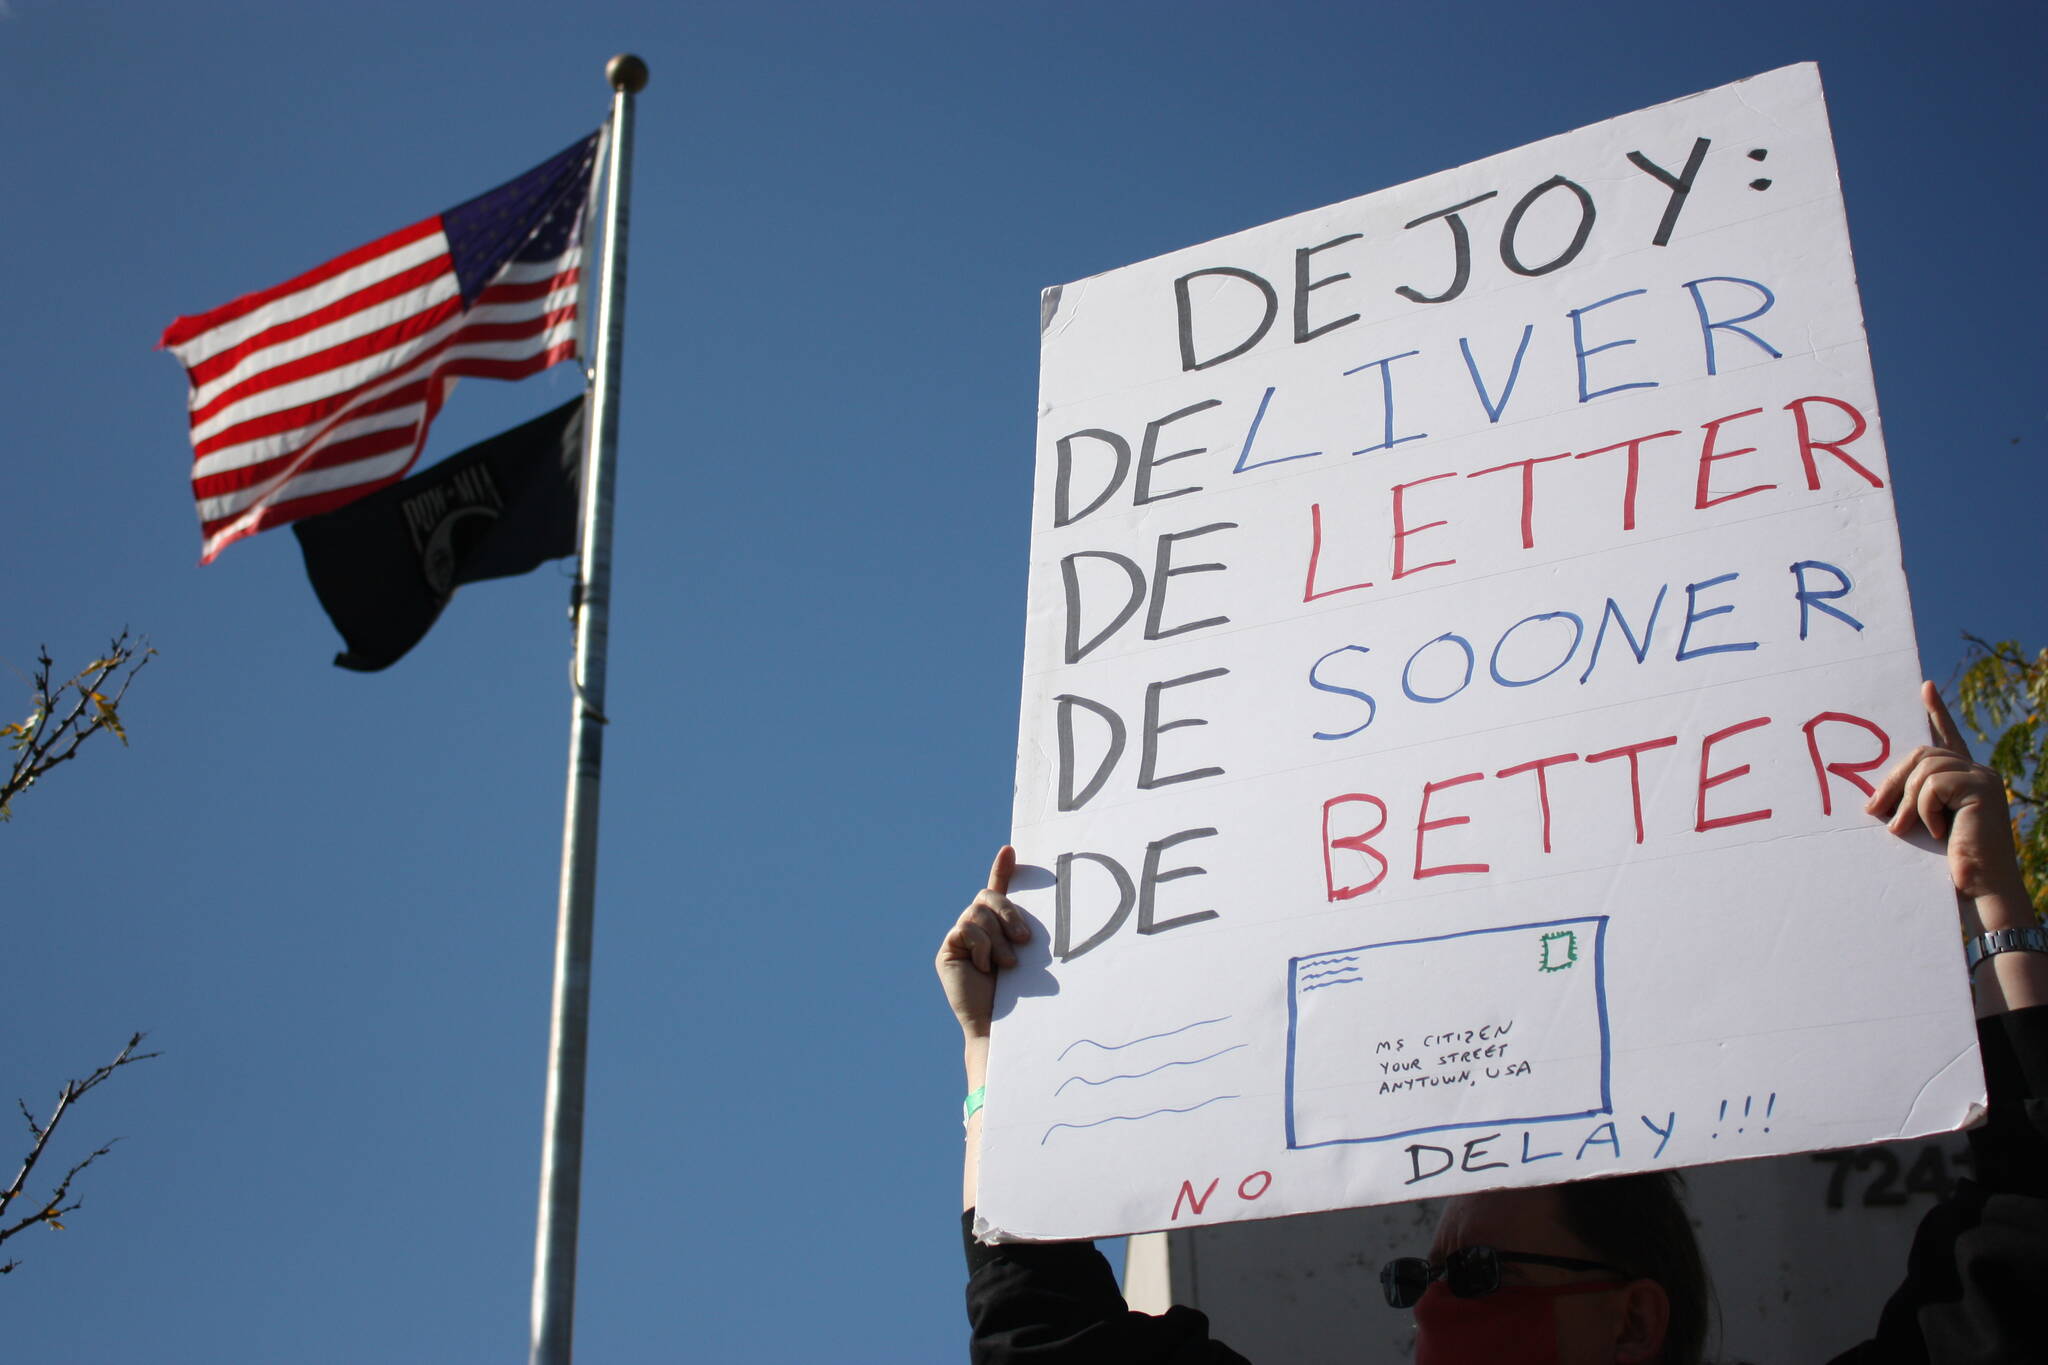 POW★MIA
DEJOY:
DELIVER
DE LETTER
DE SOONER
DE BETTER
MS CITIZEN
YOUR STREET
ANYTOWN, USA
NO DELAY!!!
724